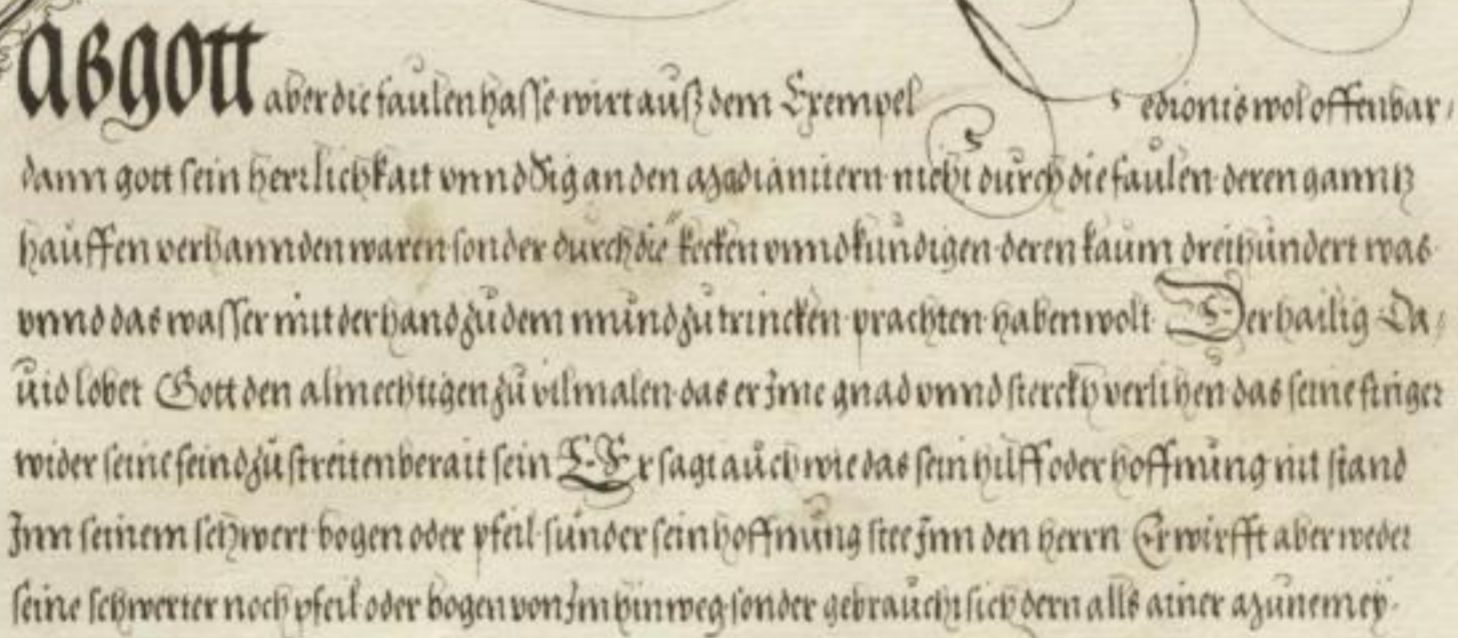 Das gott aber die faulen hasse wirt auß dem Exempel Gedionis wol offenbar /
dann gott sein herrlichkait vnnd Sig an den Madianitern nicht durch die faulen deren ganntz
hauffen verhannden waren sonder durch die kecken vnnd kundigen deren kaum dreihundert was
vnnd das wasser mit der hand zu dem mund zu trincken prachten haben wolt Der hailig Da /
uid lobet Gott den almechtigen zu vilmalen das er Jme gnad vnnd sterckh verlihen das seine finger
wider seine feind zu streiten berait sein Er sagt auch wie das sein hilff oder hoffnung nit stand
Jnn seinem schwert bogen oder pfeil sunder sein hoffnung stee Jnn den herrn Er wirfft aber weder
seine schwerter noch pfeil oder bogen von Jm hinweg sonder gebraucht sich dern alls ainer